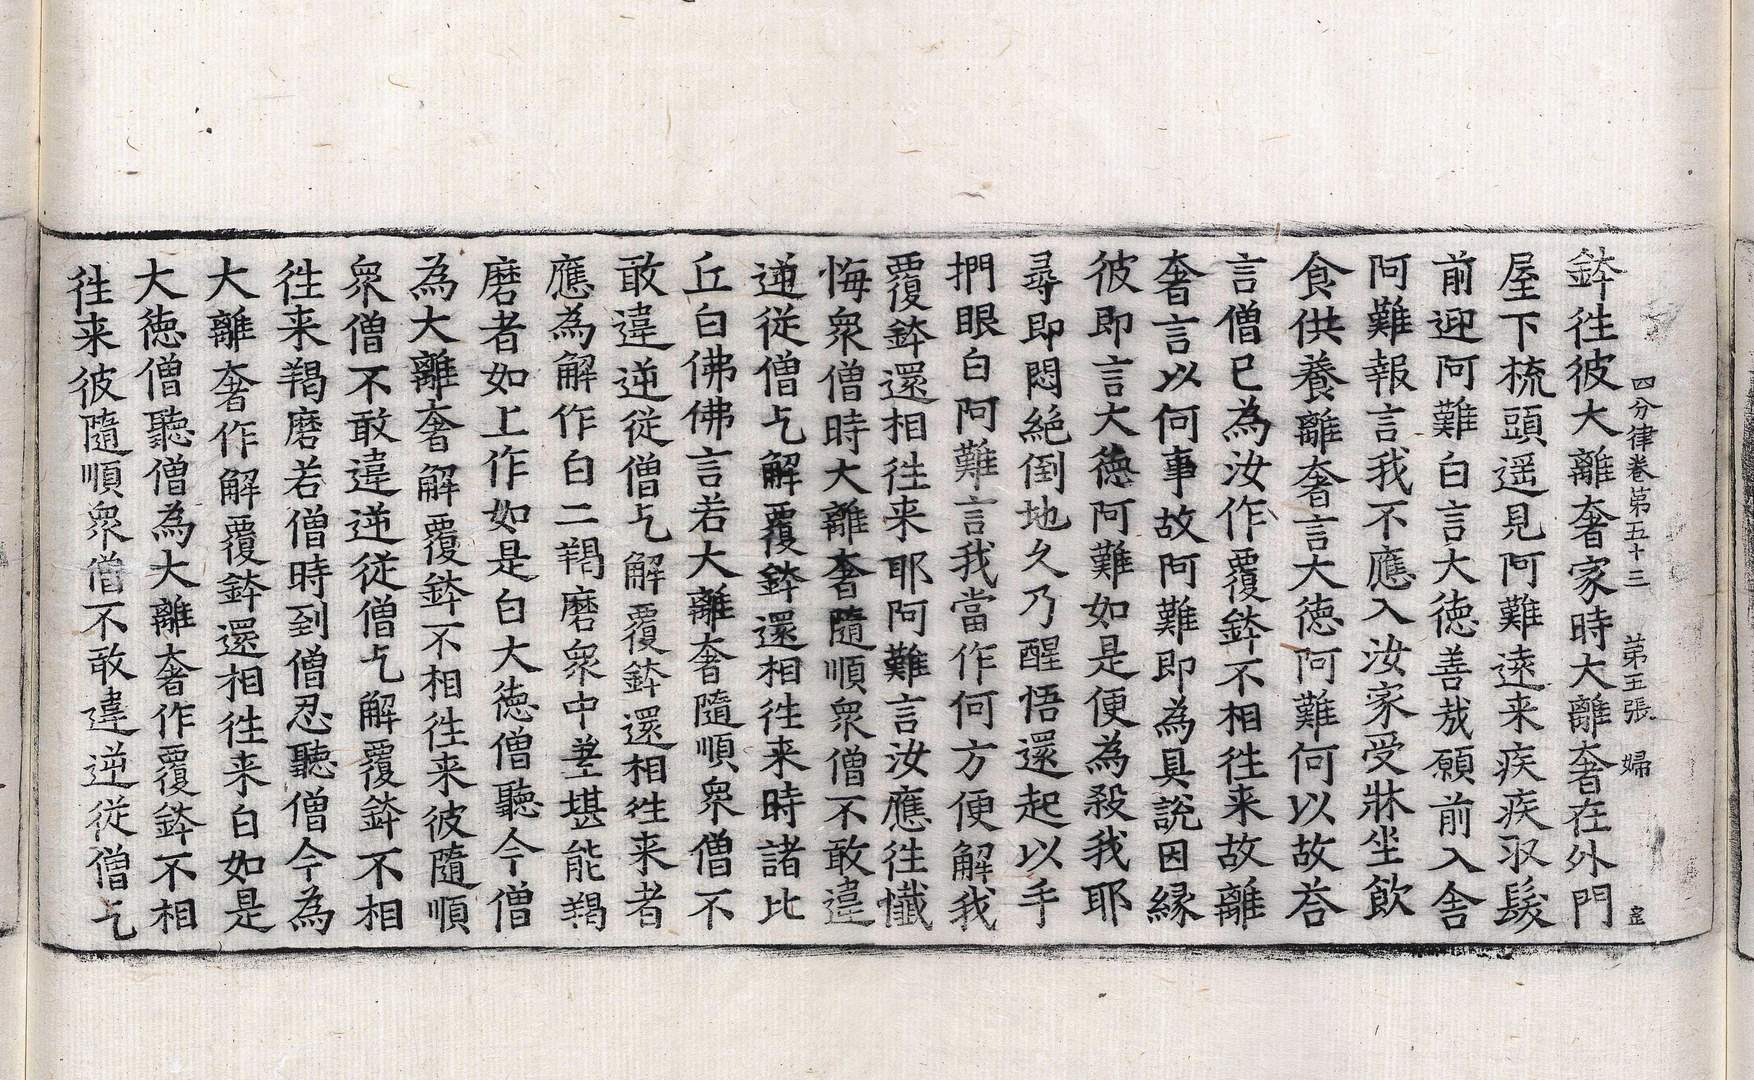 四分律卷第五十三　第五張　婦
鉢徃彼大離奢家時大離奢在外門
屋下梳頭遥見阿難遠来疾疾収髮
前迎阿難白言大徳善㢤願前入舎
阿難報言我不應入汝家受牀坐飲
食供養離奢言大徳阿難何以故荅
言僧已為汝作覆鉢不相徃来故離
奢言以何事故阿難即為具說因縁
彼即言大徳阿難如是便為殺我耶
尋即悶絕倒地久乃醒悟還起以手
捫眼白阿難言我當作何方便解我
覆鉢還相徃来耶阿難言汝應徃懺
悔衆僧時大離奢隨順衆僧不敢違
逆從僧乞解覆鉢還相徃来時諸比
丘白佛佛言若大離奢隨順衆僧不
敢違逆從僧乞解覆鉢還相徃来者
應為解作白二羯磨衆中差堪能羯
磨者如上作如是白大徳僧聽今僧
為大離奢解覆鉢不相徃来彼隨順
衆僧不敢違逆從僧乞解覆鉢不相
徃来羯磨若僧時到僧忍聽僧今為
大離奢作解覆鉢還相徃来白如是
大徳僧聽僧為大離奢作覆鉢不相
徃来彼隨順衆僧不敢違逆從僧乞